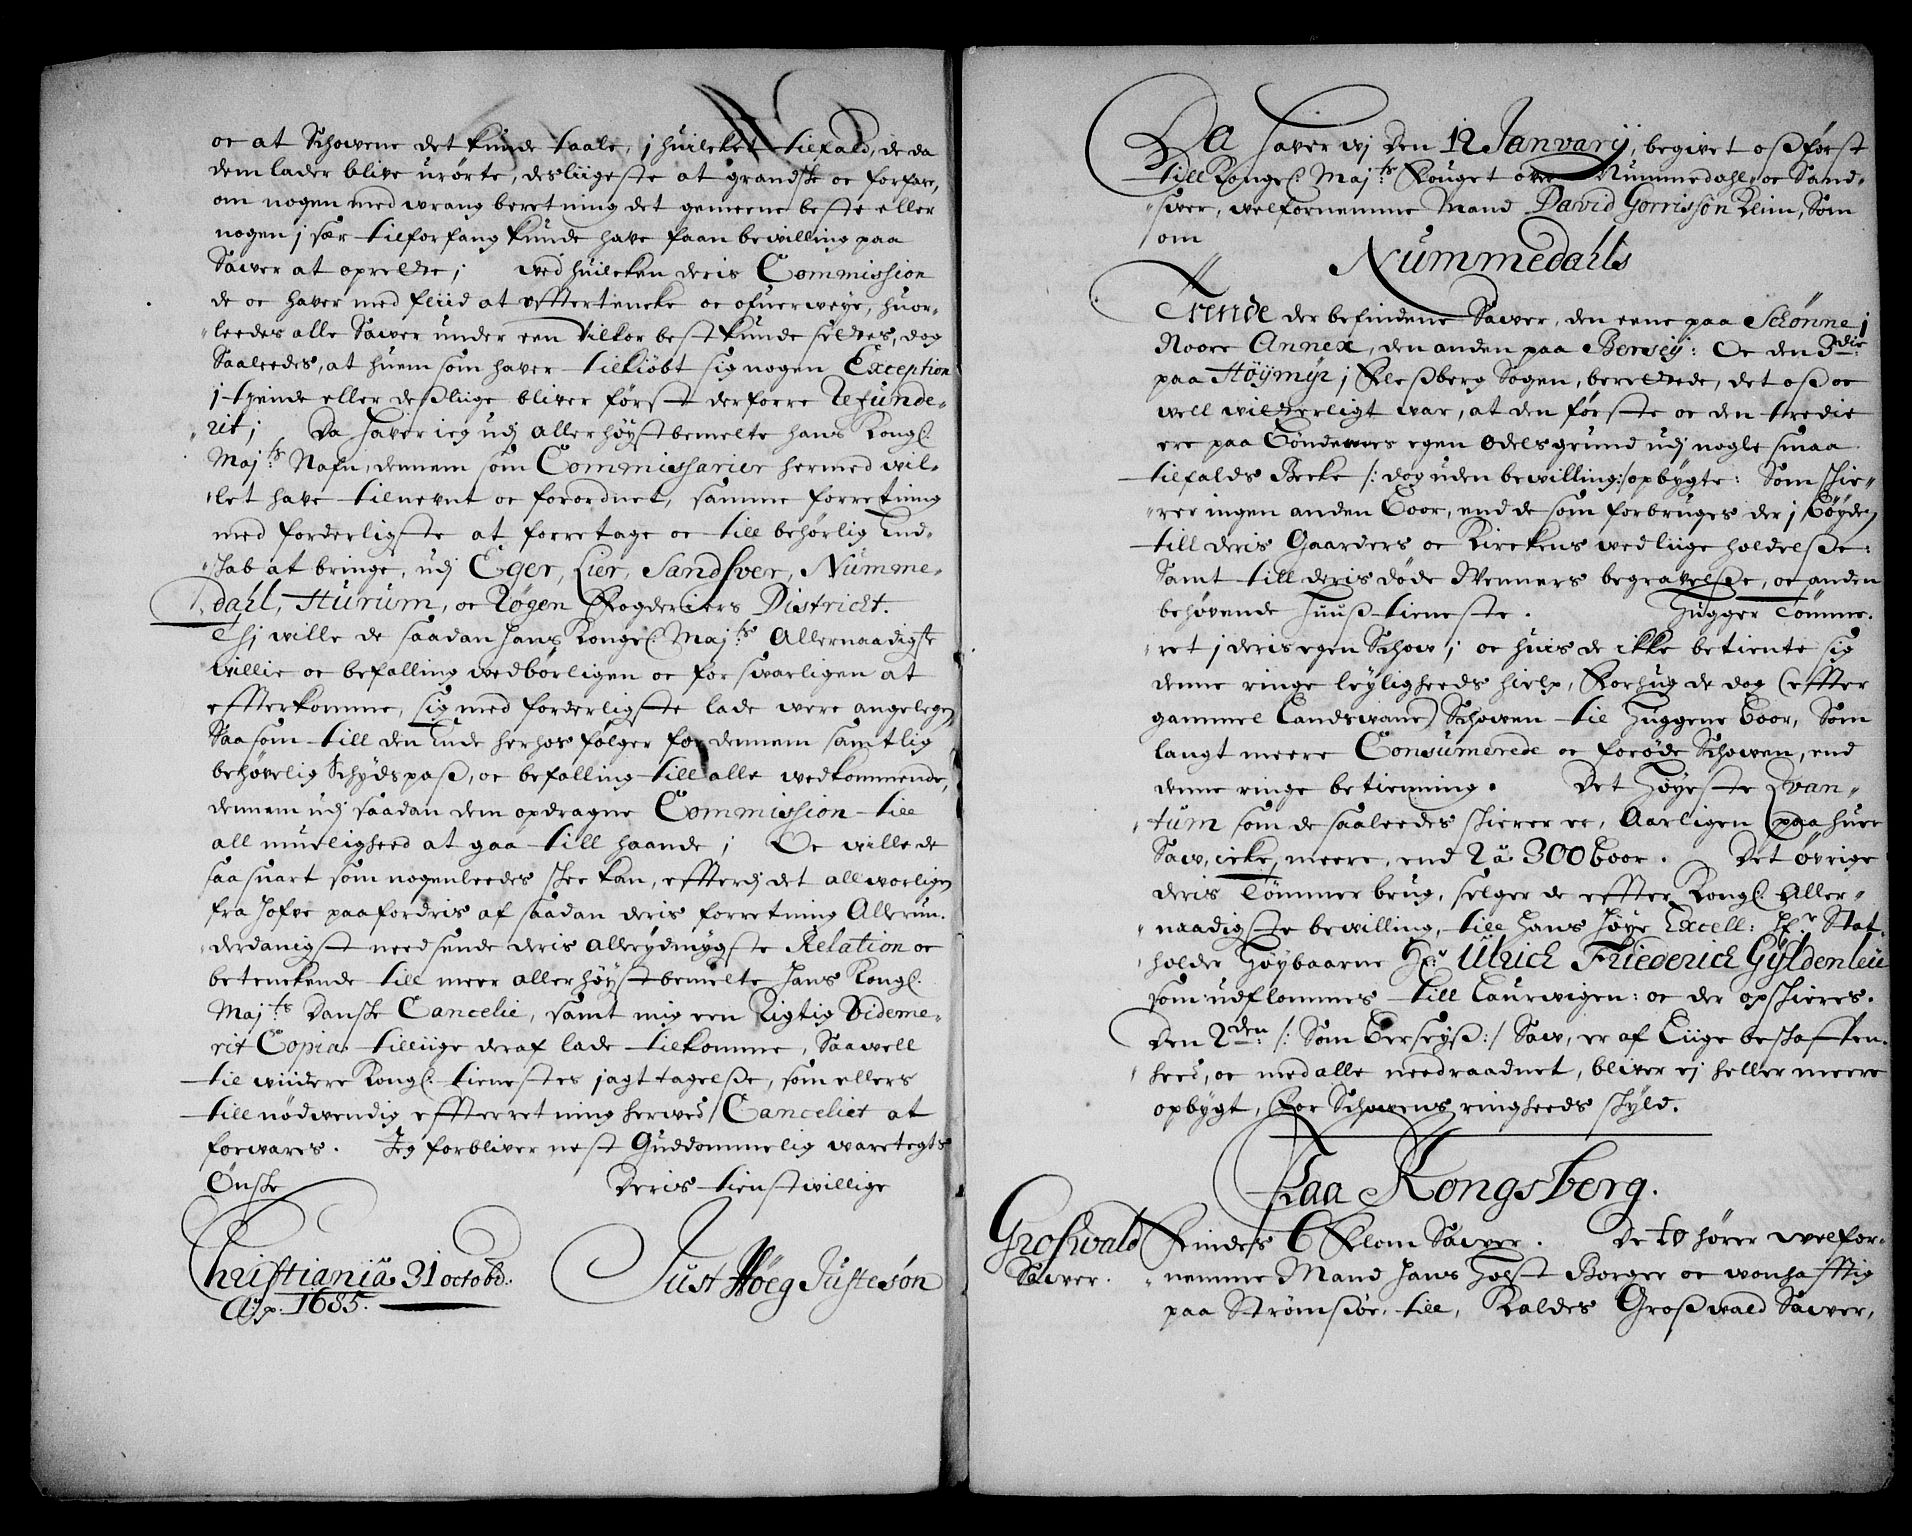 oc at Schowene det kunde taale, j huilcket tilfald, de da
dem lader blive urørte, desliigeste at grandske oc forfare,
om nogen med wrang beretning det gemeene beste eller
nogen j sær til forfang kunde have faan bewilling paa
Sawer at oprette; ved huilcken deris Commission
de oc haver med fliid at efftertencke oc ofuerweye, huor-
leedes alle Sawer under een Vilkor best kunde settes, dog
Saaleedes, at huem som haver tilkiöbt sig nogen Exception
j tiende eller desliige bliver først derforre Refunde-
rit; Da haver ieg udj allerhøystbemelte hans Kongl:
Maj:ts Nafn, dennem som Commissarier hermed wil-
let have tilnevnt oc forordnet, samme forretning
med forderligste at forretage oc till behørlig End-
skab at bringe, udj Eger, Lier, Sandsver, Numme-
dahl, Hurum, oc Røgen Fogderiers District.
Thj wille de saadan hans Kongel: Maj:ts Allernaadigste
willie oc befalling wedbörligen oc forswarligen at
effterkomme, sig med forderligste lade were angelegen
Saasom till den Ende herhos følger for dennem samtlig
behøvelig Schydspass, oc befalling till alle wedkommende,
dennem udj saadan dem opdragne Commission till
all mueligheed at gaa till haande; Oc wille de
saa snart som nogenleedes skee kan, efftersj det allworligen
fra Hofve paafordris af saadan deris forretning Allerun-
derdanigst needsende deris allerydmygste Relation oc
betenckende till meer allerhøystbemelte hans Kongl:
Maj:ts Danske Cancelie, samt mig een Rigtig Videme-
rit Copia tilliige deraf lade tilkomme, Saawell
til wiidere Kongl: tienestes jagttagelsse, som ellers
till nödwendig effterretning herved Canceliet at
forwares. Jeg forbliver nest Guddommelig waretegts
Önske Deris tienstwillige
Christiania 31 octobr:
Ao. 1685. Just Höeg Justesön
Da haver wj den 12 Januarij, begivet oss först
till Kongel: Maj:ts Fouget over Nummedahl oc Sand-
swer, welfornemme Mand David Gorrissön Klim, Som
om
Nummedahls
Trende der befindene Sawer, den eene paa Schönne j
Noore Annex, den anden paa Bersej: Oc den 3die
paa Höymyr j Flessberg Sogen, berettede, det oss oc
well witterligt war, at den første oc den tredie
ere paa Böndernes egen Odelsgrund udj nogle smaa
tilfalds Becke /: dog uden bewilling :/ opbygte: Som skie-
rer ingen anden Boor, end de som forbruges der j Böyden
till deris Gaarders oc Kirckens wedliige holdelsse:
Samt till deris döde Wenners begravelsse, oc anden
behövende Huuss tieneste. Hugger Tömme-
ret j deris egen Schow; oc huis de ikke betiente sig
denne ringe leyligheeds hielp, Forhug de dog (effter
gammel Landswane) Schowen til Huggene Boor, Som
langt meere Consumerede oc forøde Schowen, end
denne ringe betienning. Det Høyeste Qvan-
tum som de saaleedes skierer er, Aarligen paa huer
Saw, icke meere, end 2 à 300 Boor. Det øvrige
deris Tömmer brug, selger de effter Kongl: Aller-
naadigste bewilling, till Hans Höye Excell: Hr. Stat-
holder Høybaarne Hr: Ulrich Friederich Gyldenleu
som udflommes till Laurwigen: oc der opskieres.
Den 2den /: Som Berseyss :/ Saw, er af Liige beskaffen-
heed, oc med alle needraadnet, bliver ej heller meere
opbygt, for Schowens ringheeds skyld.
Paa Kongsberg.
Grosswald Findes 6 Flom Sawer. De to hører welfor-
Sawer. nemme Mand Hans Holst Borger oc wonhafftig
paa Strömsöe, till, Kaldes Grosswald Sawer,